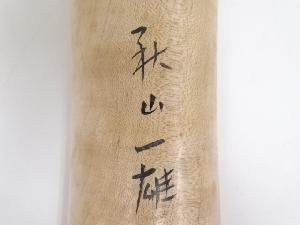 秋山一雄